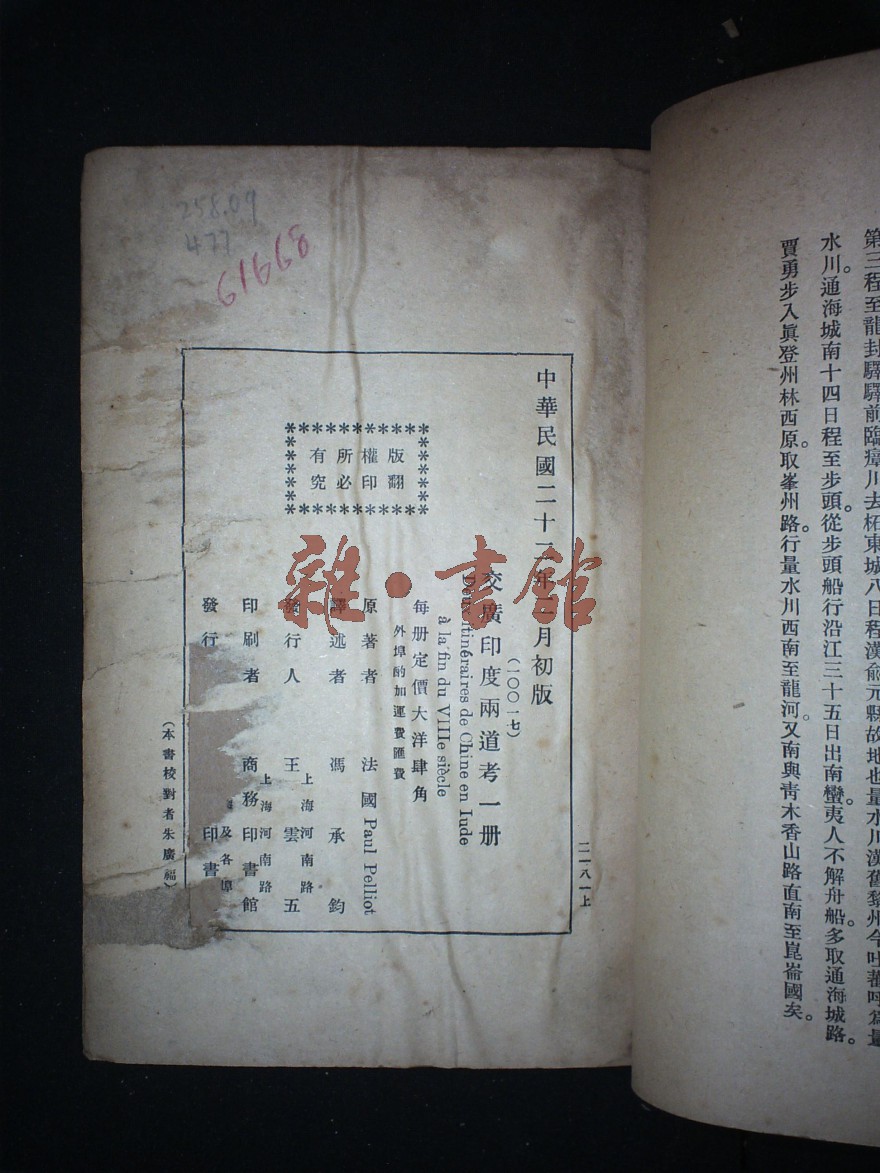 第三程至龍封驛驛前臨瘴川去柘東城八日程漢俞元縣故地也量水川漢舊黎州今吐蕃呼爲量
水川。通海城南十四日程至步頭。從步頭船行沿江三十五日出南蠻。夷人不解舟船。多取通海城路。
賈勇步入眞登州林西原。取峯州路。行量水川西南至龍河。又南與靑木香山路直南至崑崙國矣。
258.09
477
61668
中華民國二十二年 月初版
二一八一上
(一〇〇一七)
交廣印度兩道考一册
Deux itinéraires de Chine en Inde
à la fin du VIIIe siècle
每册定價大洋肆角
外埠酌加運費匯費
版權所有
翻印必究
原著者 法國 Paul Pelliot
譯述者 馮承鈞
上海河南路
發行人 王雲五
上海河南路
印刷者 商務印書館
及各埠
發行 印書
(本書校對者朱廣福)
雜·書館